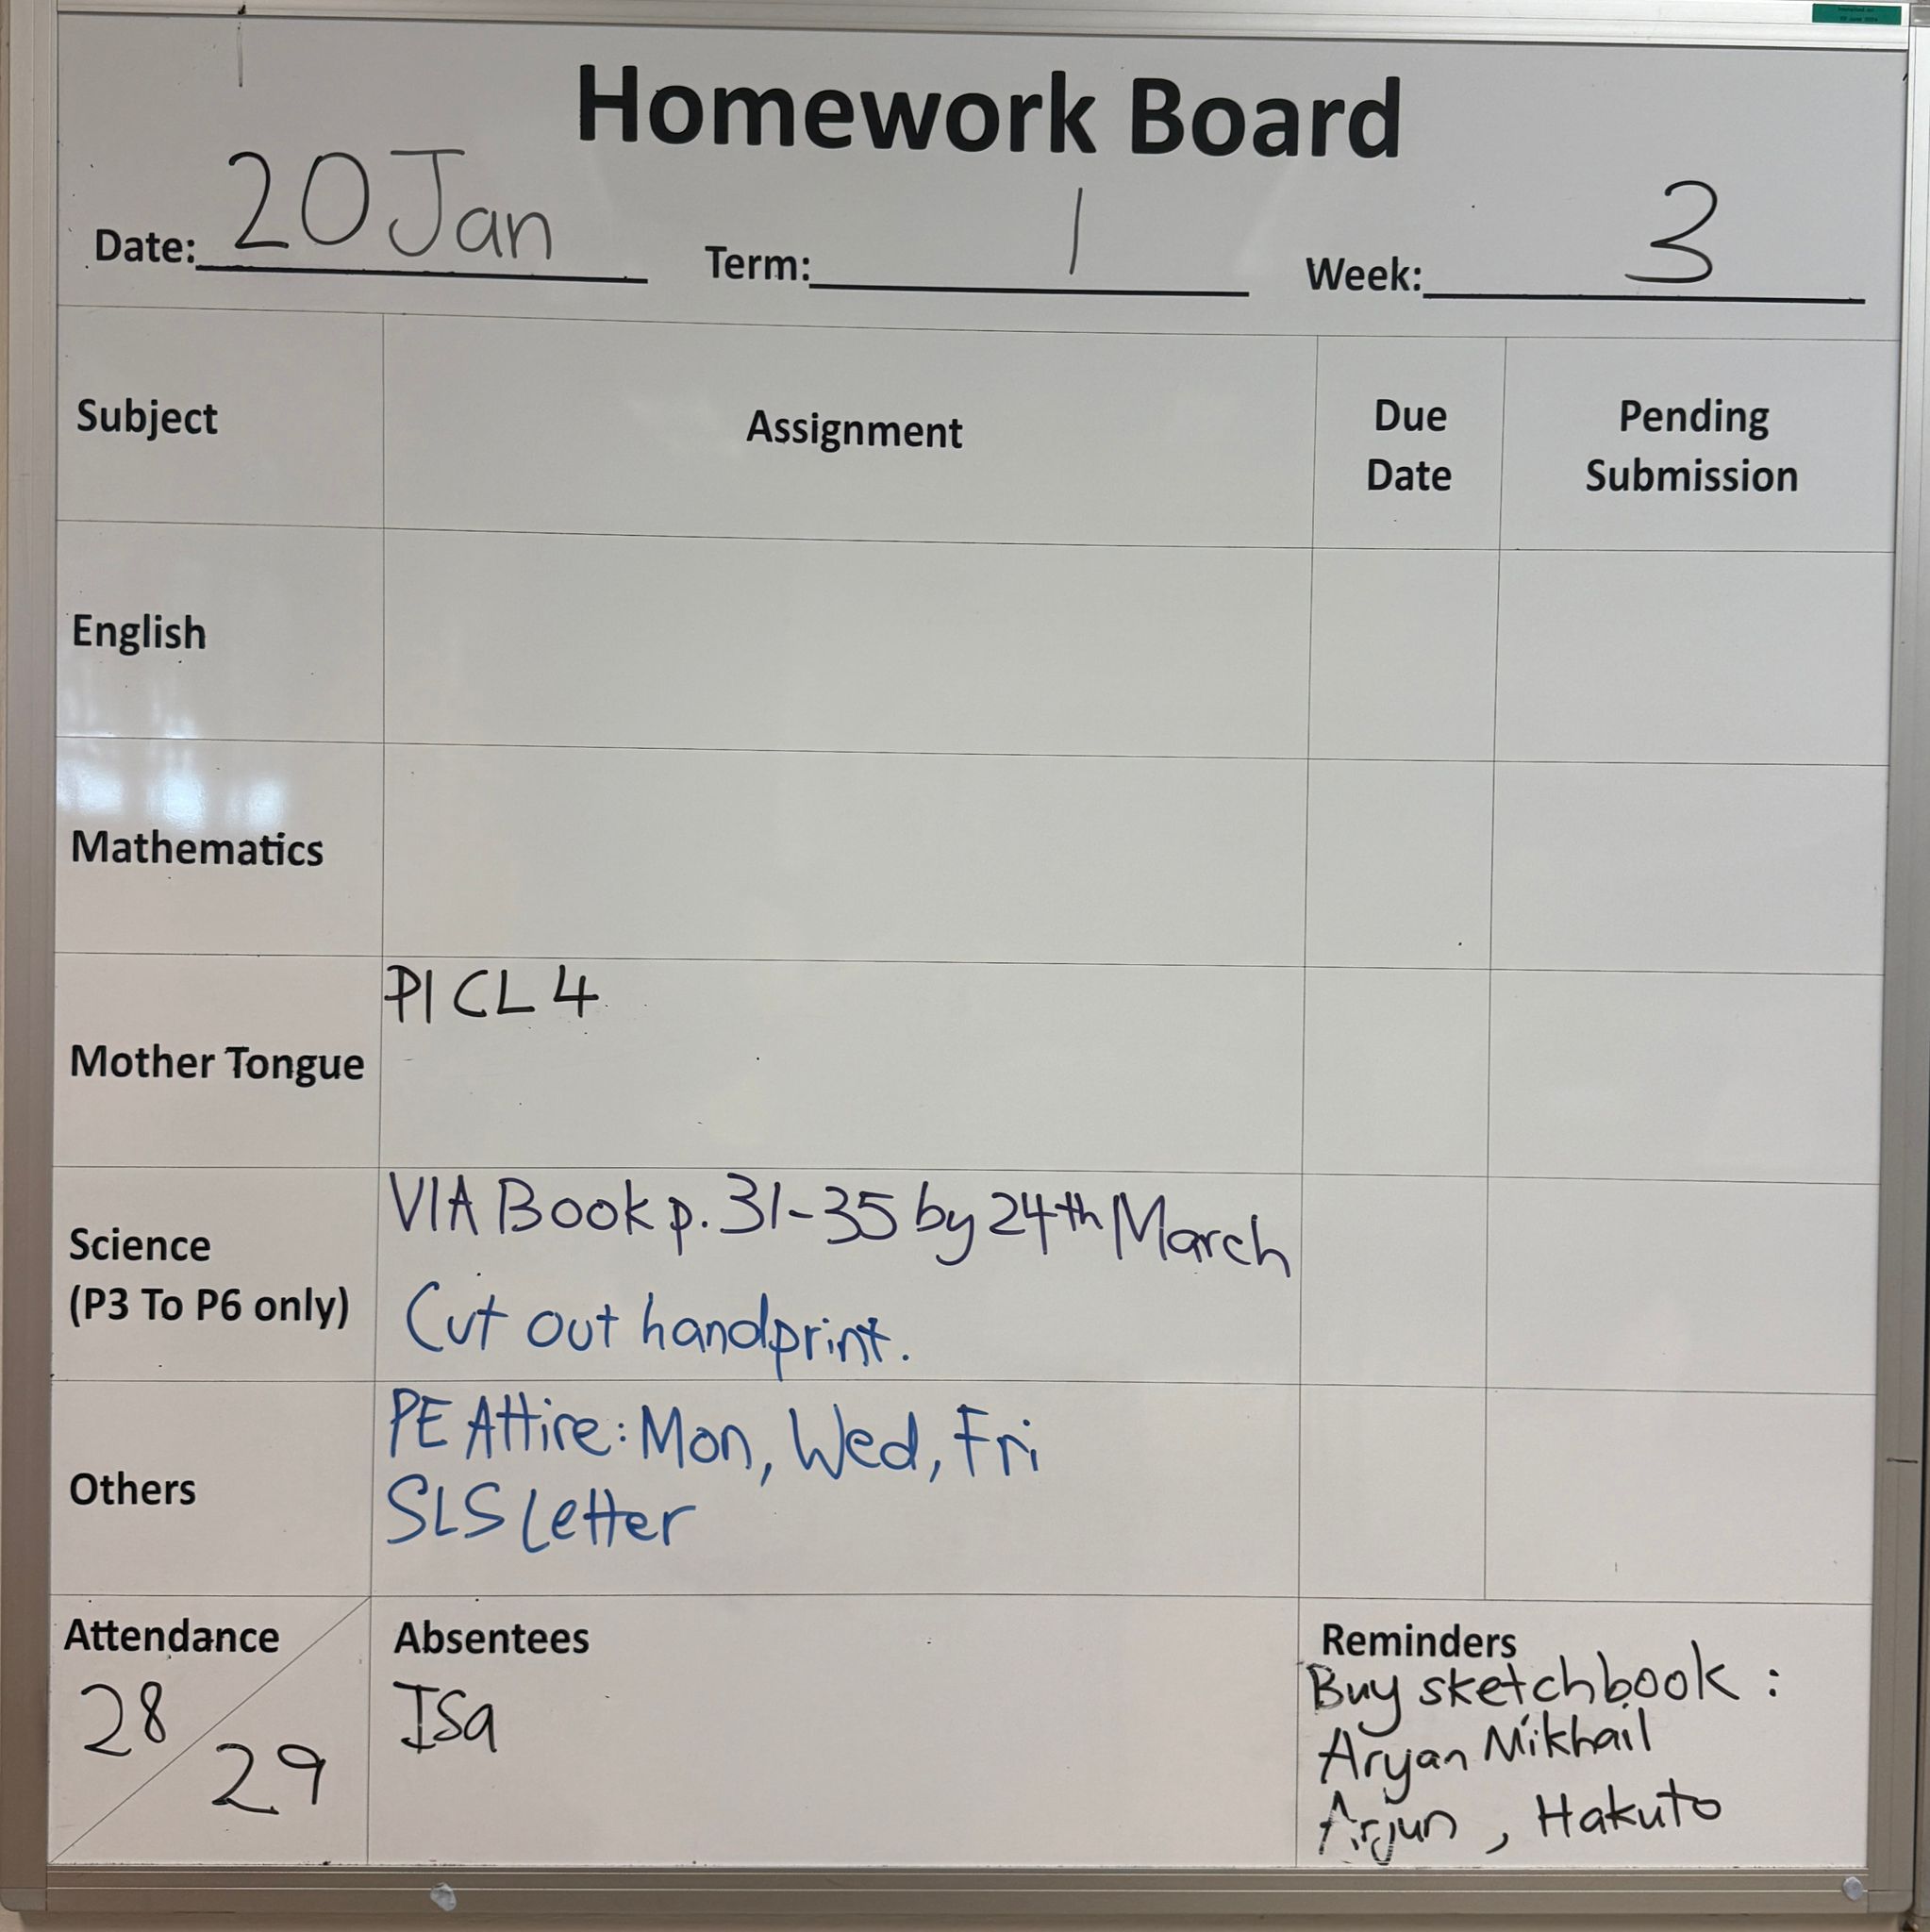 Homework Board
Date: 20 Jan Term: 1 Week: 3
Subject Assignment Due Date Pending Submission
English
Mathematics
Mother Tongue PI CL 4
Science (P3 To P6 only)
VIA Book p. 31-35 by 24th March
Cut out handprint.
Others
PE Attire: Mon, Wed, Fri
SLS Letter
Attendance
28
29
Absentees
Isa
Reminders
Buy sketchbook :
Aryan Mikhail
Arjun , Hakuto